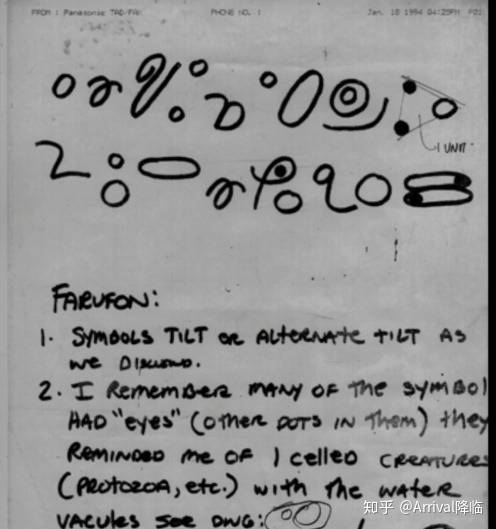 FROM : Panksonic TAD/FAX PHONE NO. : Jan. 18 1994 04:25PM P01
1 UNIT
FARUFON:
1. SYMBOLS TILT OR ALTERNATE TILT AS
WE DISCUSSED.
2. I REMEMBER MANY OF THE SYMBOL
HAD "EYES" (OTHER DOTS IN THEM) THEY
REMINDED ME OF 1 CELLED CREATURES
(PROTOZOA, ETC.) WITH THE WATER
VACULES SEE DWG:
知乎 @Arrival降临